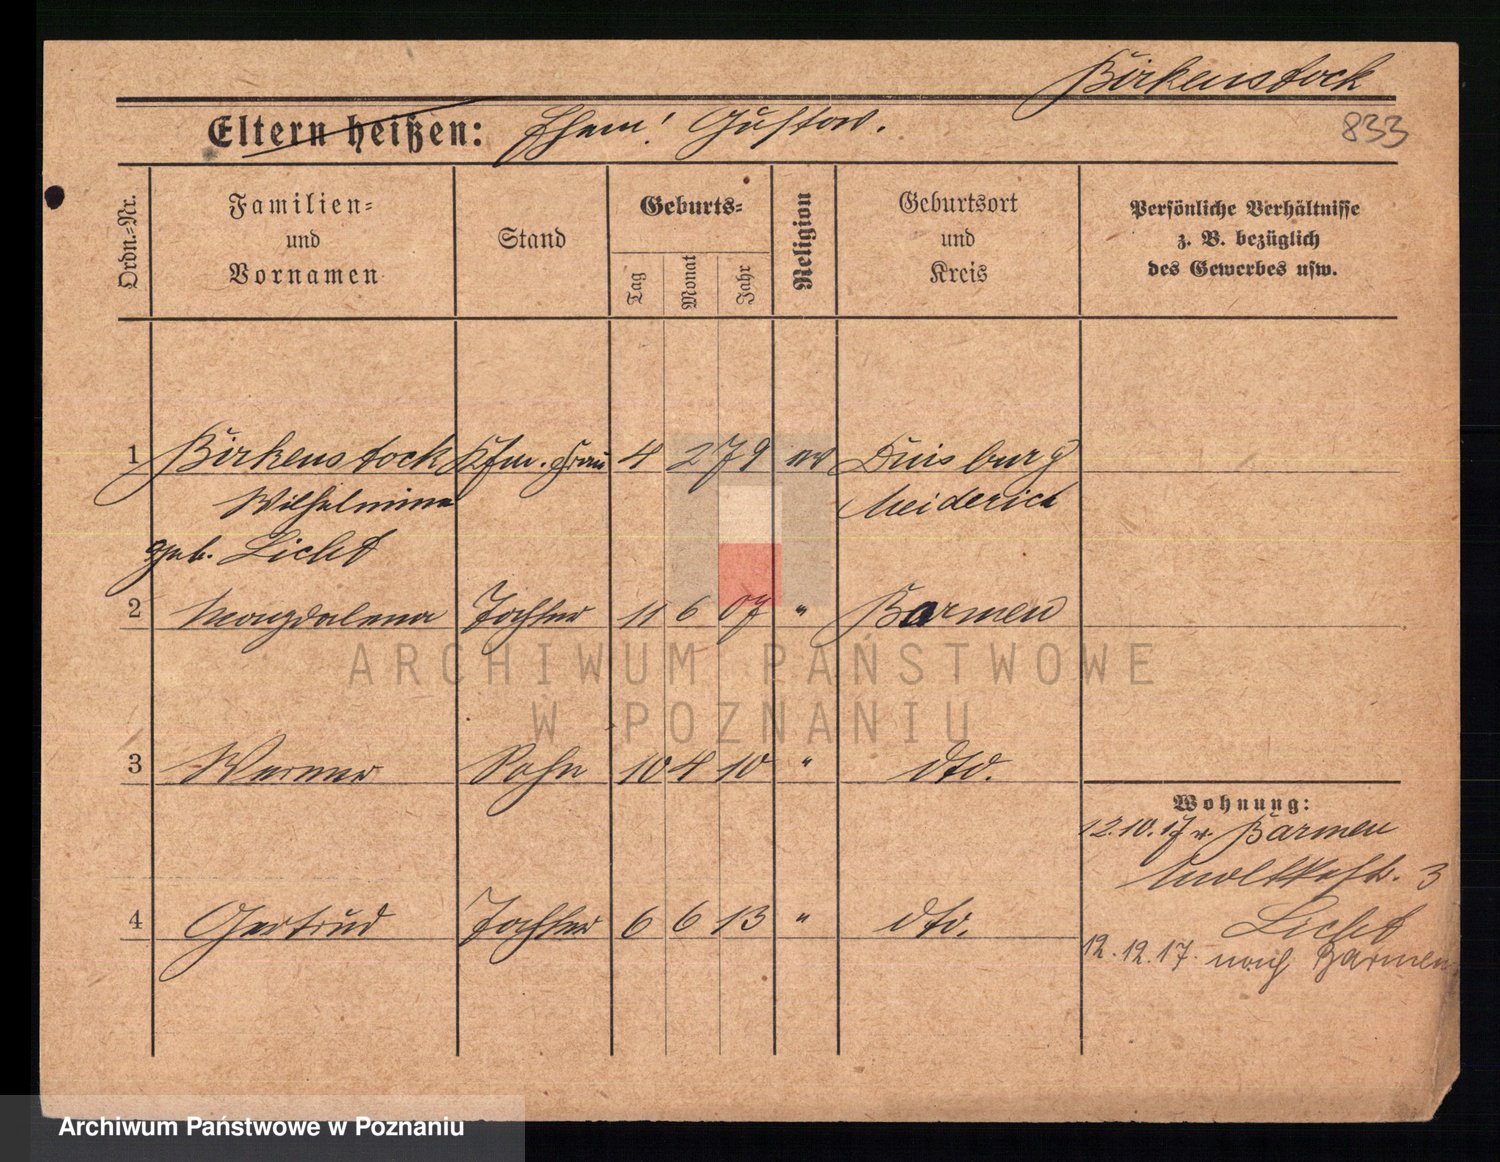 Birkenstock
Eltern heißen: Ehem: Gustav.
833
Ordn.-Nr.
Familien-
und
Vornamen
Stand
Geburts-
Tag
Monat
Jahr
Religion
Geburtsort
und
Kreis
Persönliche Verhältnisse
z. B. bezüglich
des Gewerbes usw.
1 Birkenstock Kfm. Frau 4 2 79 ev Duisburg
Wilhelmine Meiderich
geb. Licht
2 Magdalena Tochter 11 6 07 " Barmen
ARCHIWUM PAŃSTWOWE
W POZNANIU
3 Werner Sohn 10 4 10 " dto.
Wohnung:
12.10.17 v. Barmen
Moltkestr. 3
4 Gertrud Tochter 6 6 13 " dto.
Licht
12.12.17. nach Barmen
Archiwum Państwowe w Poznaniu